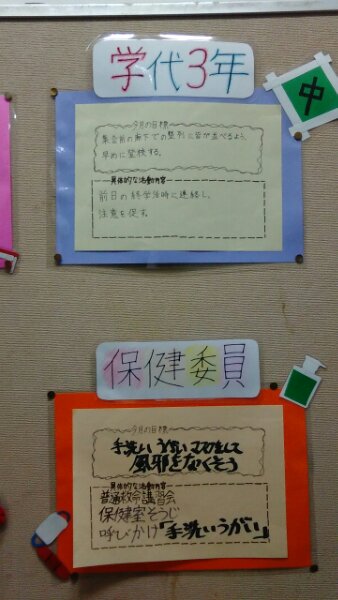 学代3年
中
今月の目標
集会前の廊下での整列に皆が並べるよう、
早めに登校する。
具体的な活動内容
前日の終学活時に連絡し、
注意を促す。
保健委員
今月の目標
風邪をなくそう
具体的な活動内容
普通救命講習会
保健室そうじ
呼びかけ「手洗いうがい」